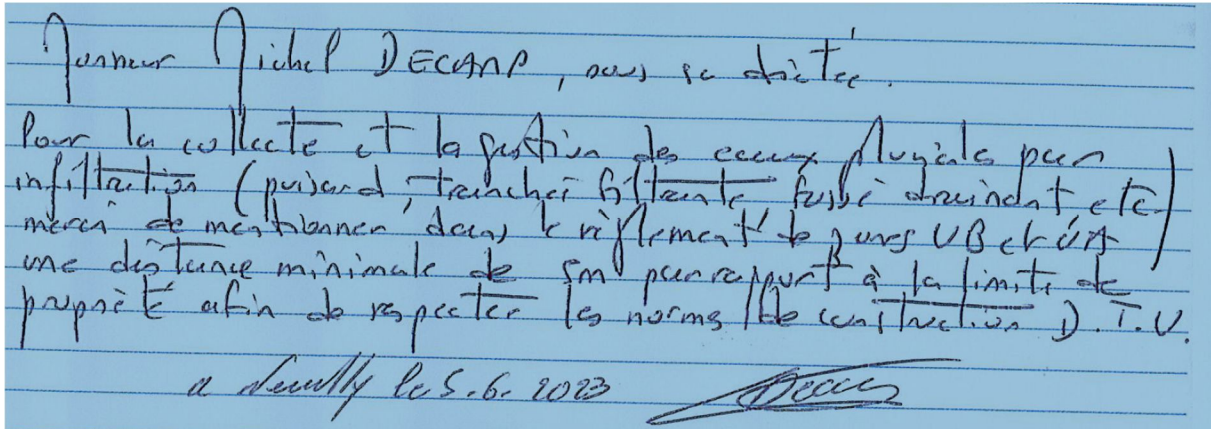 Monsieur Michel DECAMP, sous sa dictée.
Pour la collecte et la gestion des eaux pluviale par
infiltration (puisard, tranchée filtrante, fossé draindant, etc)
merci de mentionner dans le règlement de zones UB et UA
une distance minimale de 5m par rapport à la limite de
propriété afin de respecter les normes de construction D.T.U.
a le 5.6.2023